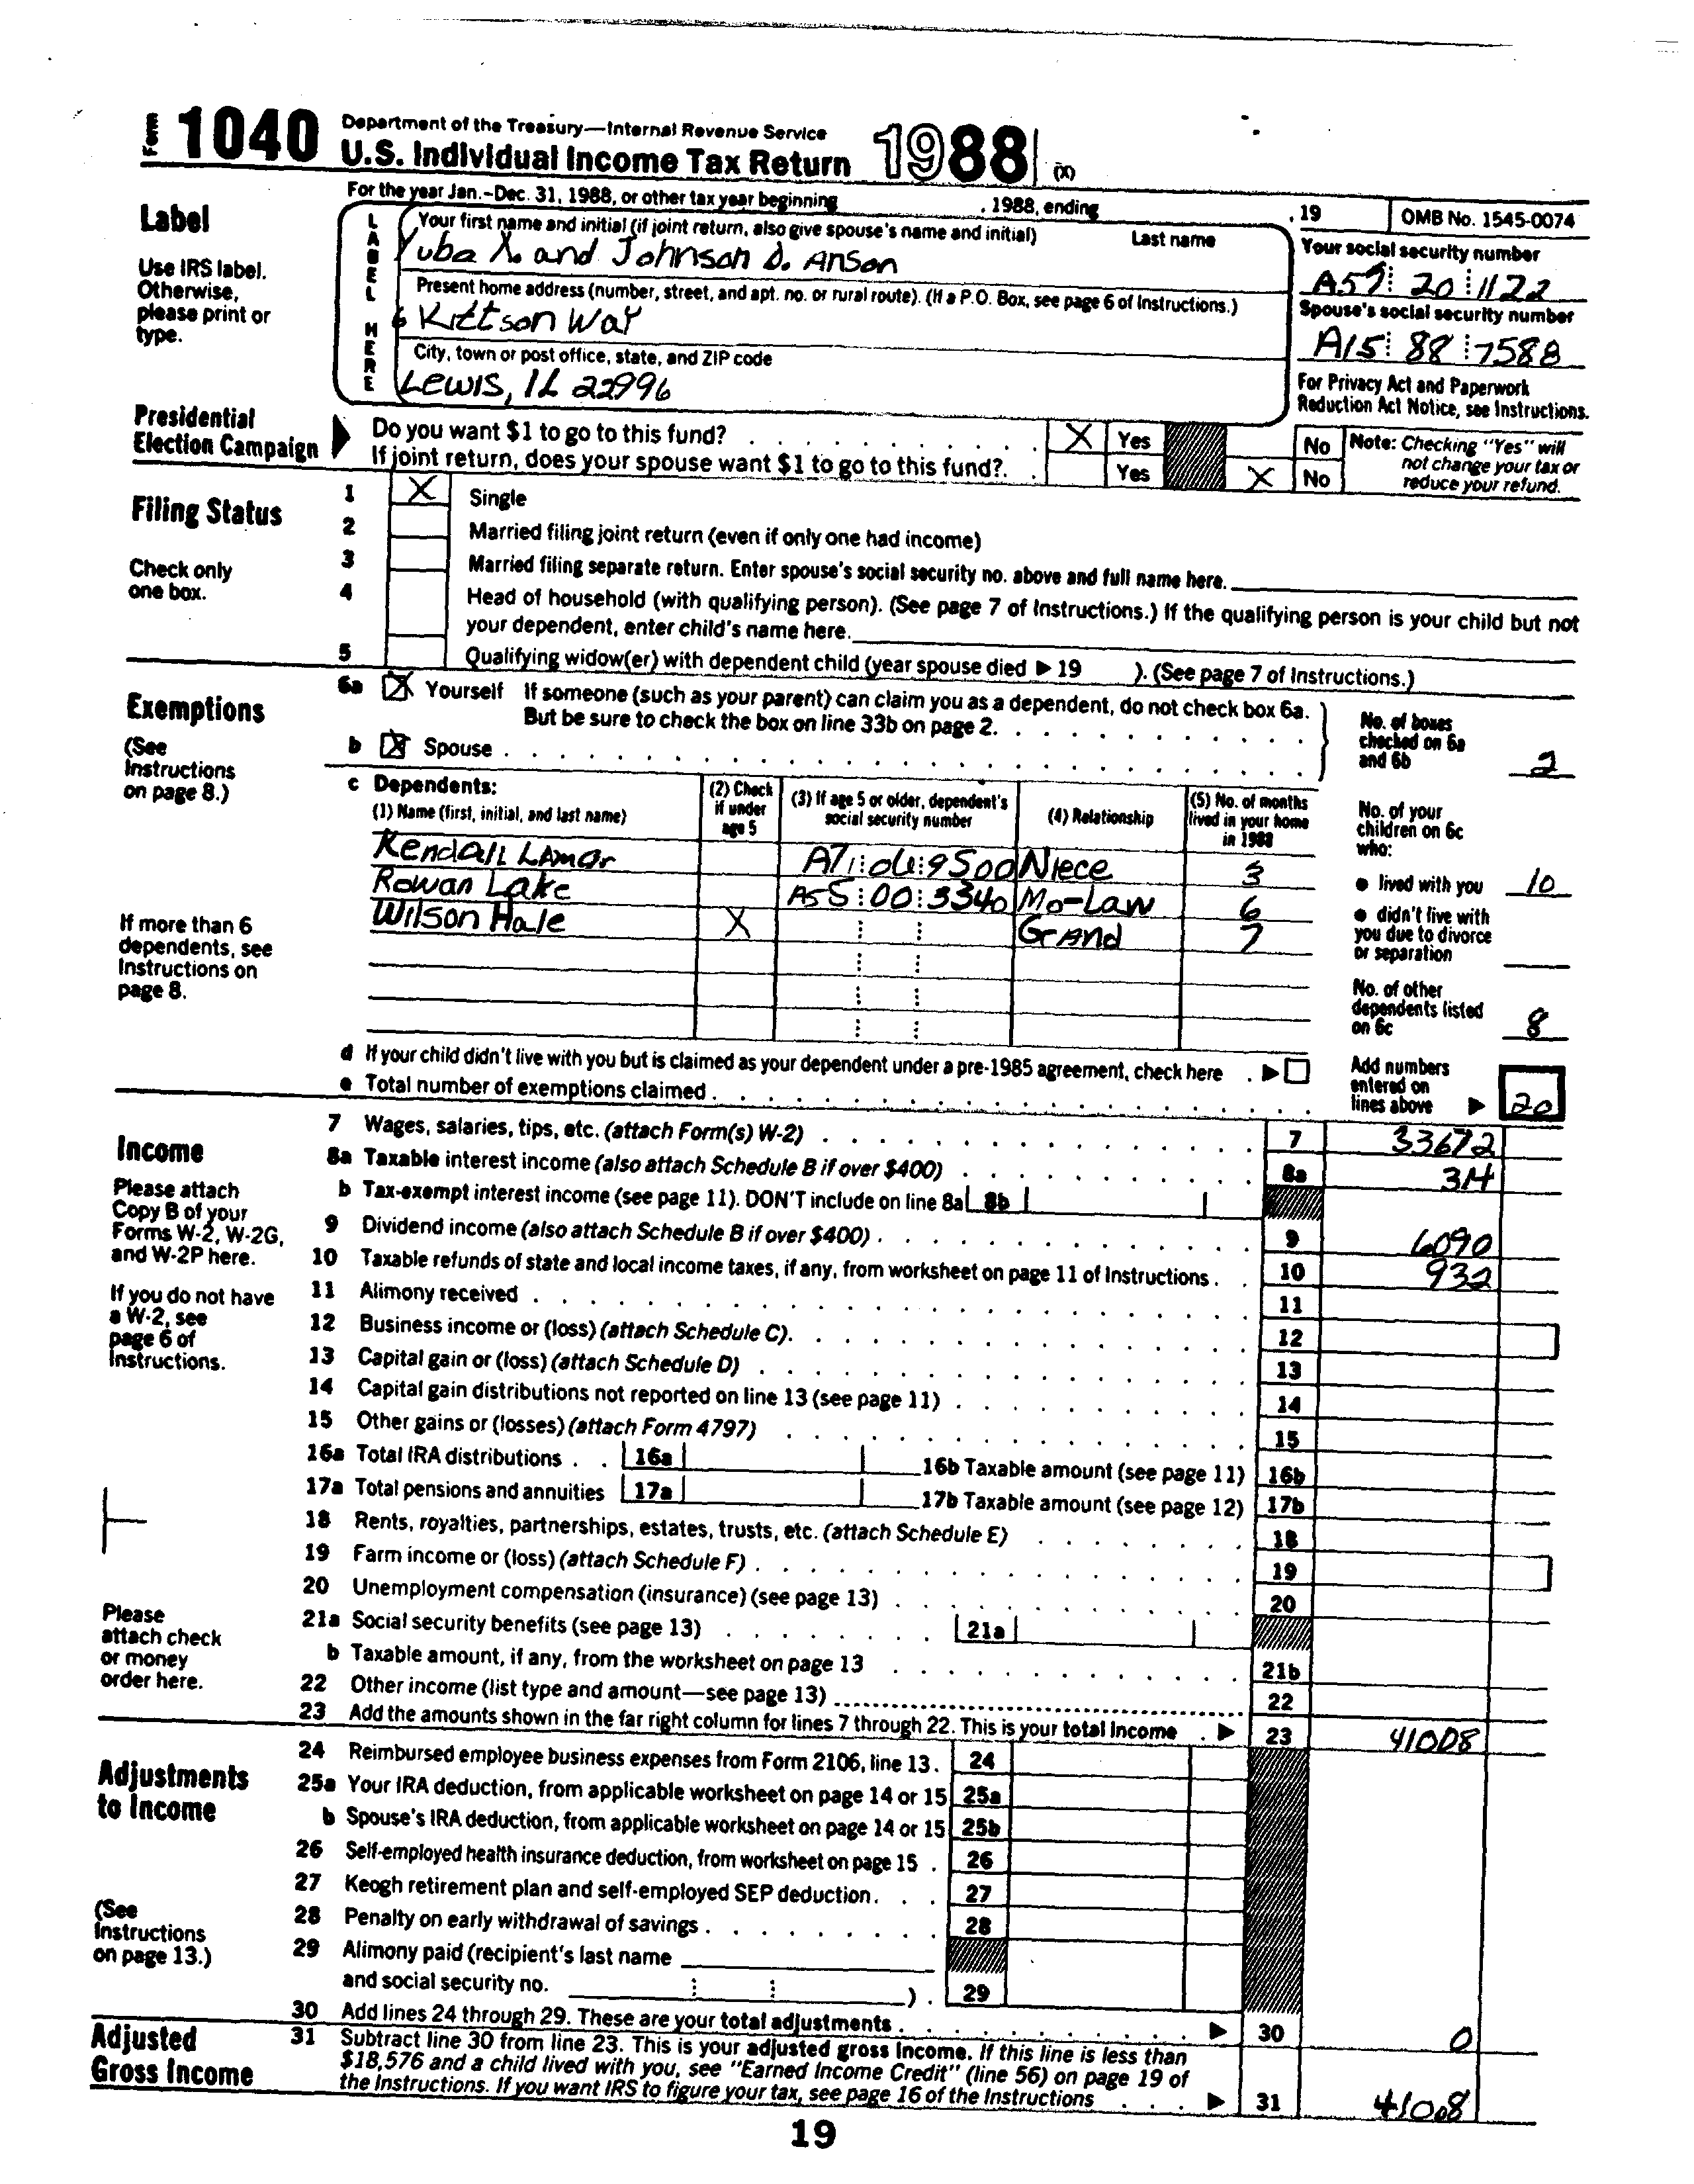 Form 1040 Department of the Treasury—Internal Revenue Service
U.S. Individual Income Tax Return 1988 (X)
For the year Jan.-Dec. 31, 1988, or other tax year beginning , 1988, ending , 19 OMB No. 1545-0074
Label
Use IRS label.
Otherwise,
please print or
type.
LABEL HERE
Your first name and initial (if joint return, also give spouse's name and initial) Last name
Yuba X. and Johnson D. Anson
Your social security number
A59 20 1122
Present home address (number, street, and apt. no. or rural route). (If a P.O. Box, see page 6 of Instructions.)
6 Kittson Way
Spouse's social security number
A15 88 7588
City, town or post office, state, and ZIP code
Lewis, IL 22996
For Privacy Act and Paperwork
Reduction Act Notice, see Instructions.
Presidential
Election Campaign
Do you want $1 to go to this fund? X Yes No
If joint return, does your spouse want $1 to go to this fund? Yes X No
Note: Checking "Yes" will
not change your tax or
reduce your refund.
Filing Status
Check only
one box.
1 X Single
2 Married filing joint return (even if only one had income)
3 Married filing separate return. Enter spouse's social security no. above and full name here.
4 Head of household (with qualifying person). (See page 7 of Instructions.) If the qualifying person is your child but not
your dependent, enter child's name here.
5 Qualifying widow(er) with dependent child (year spouse died ▶ 19 ). (See page 7 of Instructions.)
Exemptions
(See
Instructions
on page 8.)
6a X Yourself If someone (such as your parent) can claim you as a dependent, do not check box 6a.
But be sure to check the box on line 33b on page 2.
b X Spouse
No. of boxes
checked on 6a
and 6b 2
c Dependents:
(1) Name (first, initial, and last name)
(2) Check
if under
age 5
(3) If age 5 or older, dependent's
social security number
(4) Relationship
(5) No. of months
lived in your home
in 1988
Kendall Lamar Niece 3
Rowan Lake A55 00 3340 Mo-Law 6
Wilson Hale X Grand 7
If more than 6
dependents, see
Instructions on
page 8.
No. of your
children on 6c
who:
● lived with you 10
● didn't live with
you due to divorce
or separation
No. of other
dependents listed
on 6c 8
d If your child didn't live with you but is claimed as your dependent under a pre-1985 agreement, check here ▶
e Total number of exemptions claimed
Add numbers
entered on
lines above ▶ 20
Income
Please attach
Copy B of your
Forms W-2, W-2G,
and W-2P here.
If you do not have
a W-2, see
page 6 of
Instructions.
Please
attach check
or money
order here.
7 Wages, salaries, tips, etc. (attach Form(s) W-2) 7 33672
8a Taxable interest income (also attach Schedule B if over $400) 8a 314
b Tax-exempt interest income (see page 11). DON'T include on line 8a 8b
9 Dividend income (also attach Schedule B if over $400) 9 6090
10 Taxable refunds of state and local income taxes, if any, from worksheet on page 11 of Instructions. 10 932
11 Alimony received 11
12 Business income or (loss) (attach Schedule C). 12
13 Capital gain or (loss) (attach Schedule D) 13
14 Capital gain distributions not reported on line 13 (see page 11) 14
15 Other gains or (losses) (attach Form 4797) 15
16a Total IRA distributions 16a 16b Taxable amount (see page 11) 16b
17a Total pensions and annuities 17a 17b Taxable amount (see page 12) 17b
18 Rents, royalties, partnerships, estates, trusts, etc. (attach Schedule E) 18
19 Farm income or (loss) (attach Schedule F) 19
20 Unemployment compensation (insurance) (see page 13) 20
21a Social security benefits (see page 13) 21a
b Taxable amount, if any, from the worksheet on page 13 21b
22 Other income (list type and amount—see page 13) 22
23 Add the amounts shown in the far right column for lines 7 through 22. This is your total income ▶ 23 41008
Adjustments
to Income
(See
Instructions
on page 13.)
24 Reimbursed employee business expenses from Form 2106, line 13. 24
25a Your IRA deduction, from applicable worksheet on page 14 or 15 25a
b Spouse's IRA deduction, from applicable worksheet on page 14 or 15 25b
26 Self-employed health insurance deduction, from worksheet on page 15 26
27 Keogh retirement plan and self-employed SEP deduction. 27
28 Penalty on early withdrawal of savings 28
29 Alimony paid (recipient's last name
and social security no. ) 29
30 Add lines 24 through 29. These are your total adjustments ▶ 30 0
Adjusted
Gross Income
31 Subtract line 30 from line 23. This is your adjusted gross income. If this line is less than
$18,576 and a child lived with you, see "Earned Income Credit" (line 56) on page 19 of
the Instructions. If you want IRS to figure your tax, see page 16 of the Instructions ▶ 31 41008
19